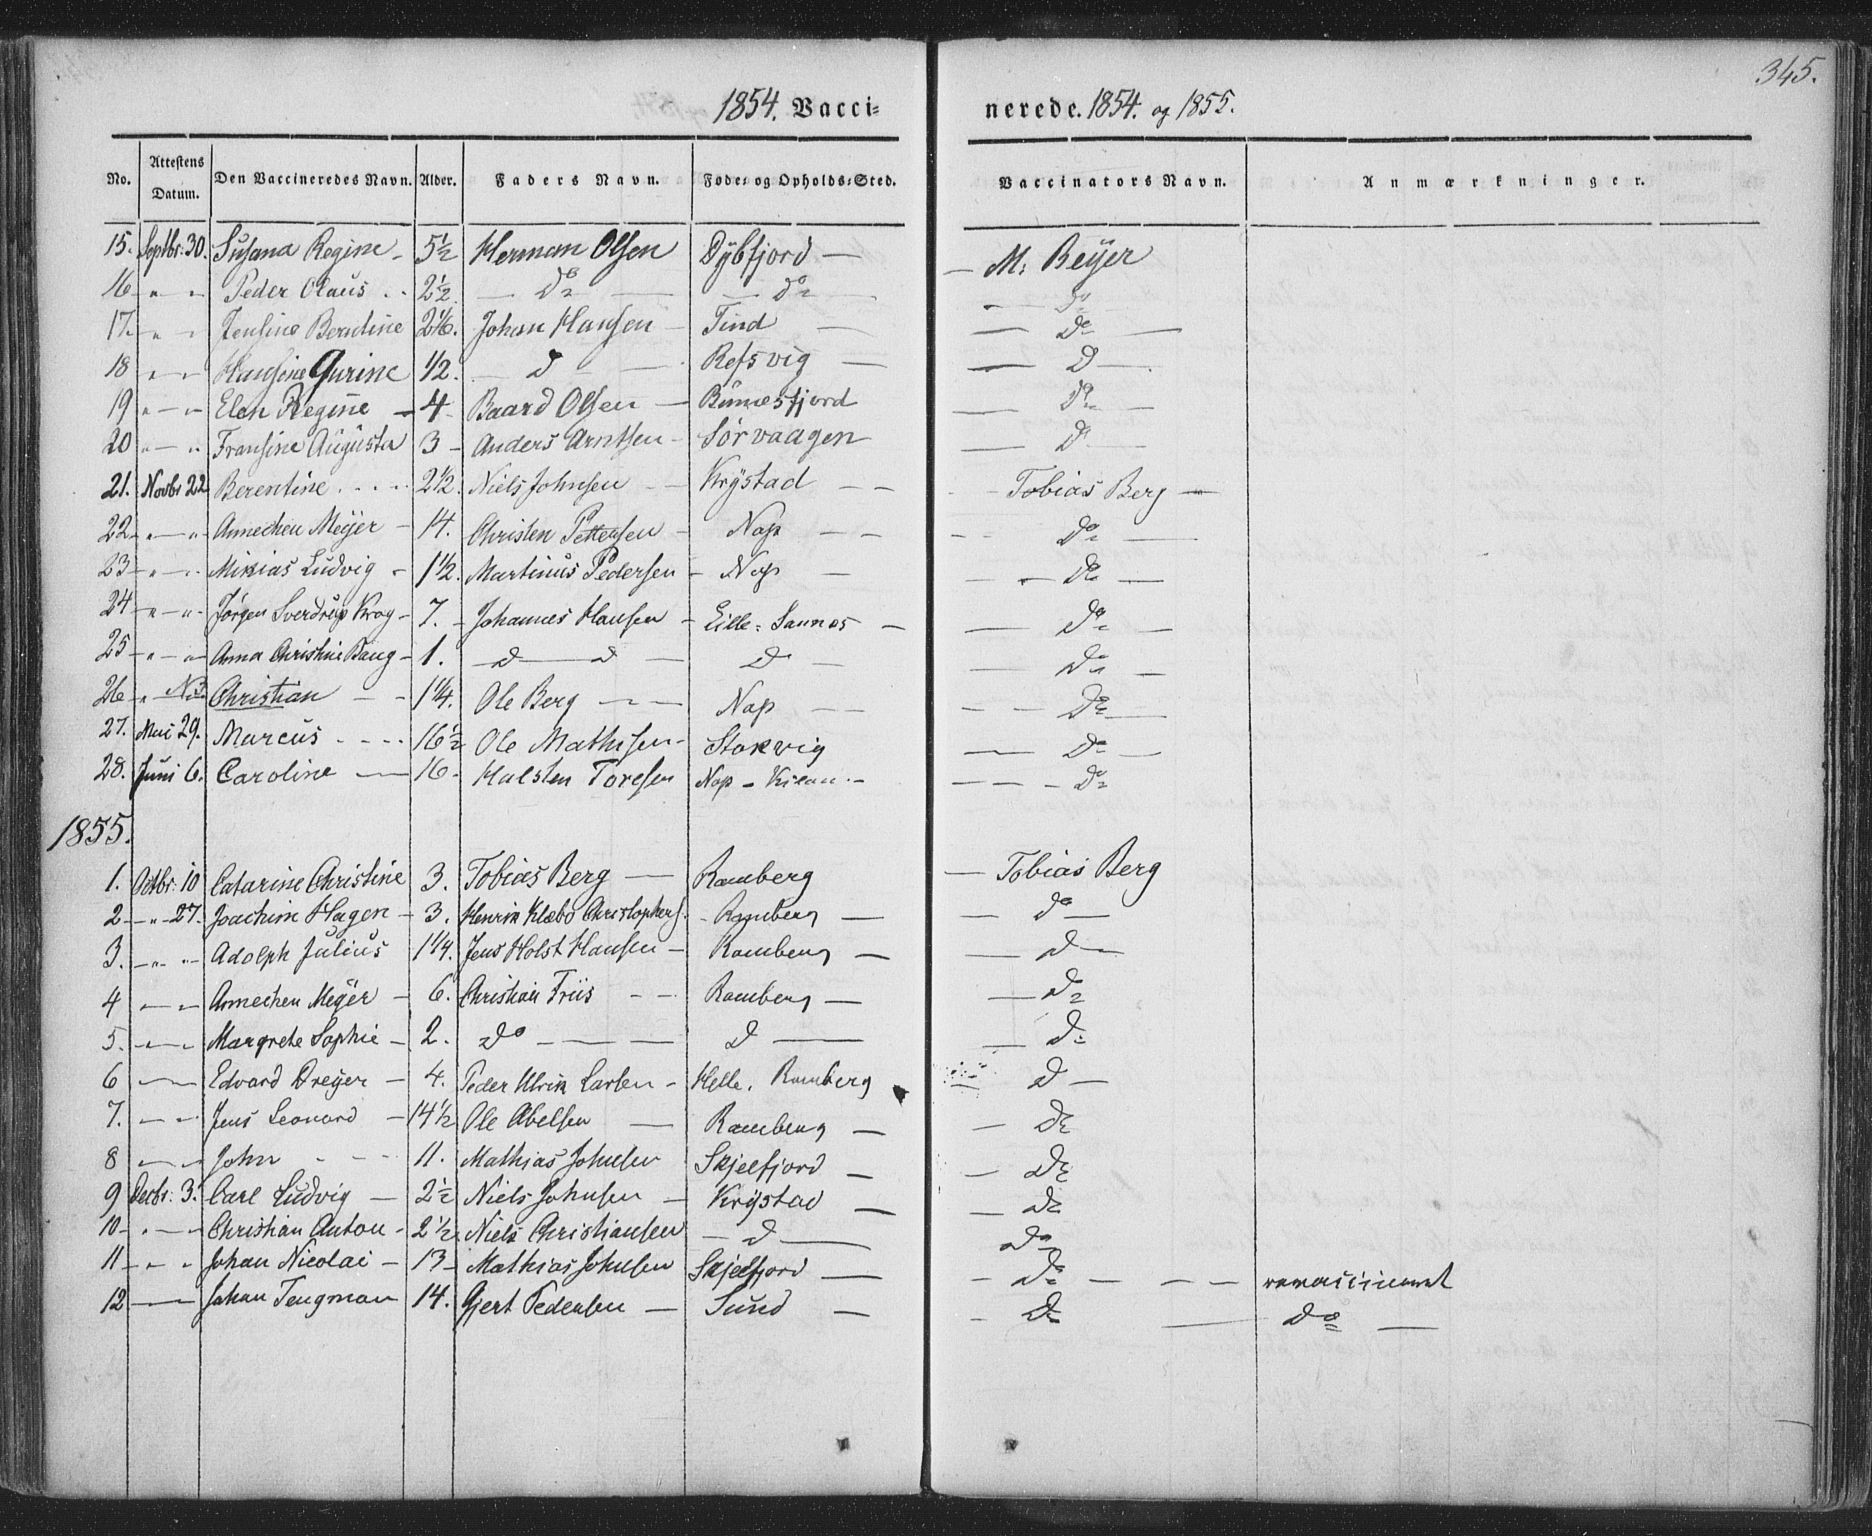 345.
1854. Vacci= nerede. 1854. og 1855.
No. Attestens Datum. Den Vaccineredes Navn. Alder. Faders Navn. Føde= og Opholds=Sted. Vaccinators Navn. Anmærkninger.
15. Septbr: 30. Susana Regine - 5½ Herman Olsen Dybfjord — — M: Beyer
16 " — " Peder Olaus . . 2½ — Do — — Do — — Do
17. " " Jensine Berntine 2 1/6. Johan Hansen — Tind — — Do —
18 " — " Hansine Gurine 1/2. — D — Refsvig — — D —
19 " — " Elen Regine — 4 Baard Olsen — Bunesfjord — Do —
20 " — " Fransine Augusta 3 - Anders Arntsen - Sørvaagen — D —
21. Novbr 22 Berentine . . . . 2½. Niels Johnsen — Krystad — — - - Tobias Berg —
22 — " — " Annechen Meyer - 14. Christen Pettersen - Nap — — - - Do —
23 — " — " Mikias Ludvig - 1½. Martinus Pedersen - Nap — - — Do —
24 — " — " Jørgen Sverdrup Krog - 7. - Johannes Hansen - Lille = Sannes — — Do —
25 — " — " Anna Christine Baug - 1. — D — D — D — — Do —
26 — " — N. 3. Christian — - 1¼. Ole Berg — — Nap — — - Do —
27. Mai 29. Marcus . . . . 16½ Ole Mathisen - Storvig — Do —
28. Juni 6. Caroline — 16. Halsten Toresen Nap - Kilan. - — — - Do
1855.
1. Octbr: 10 Catarine Christine 3. Tobias Berg — Ramberg — Tobias Berg
2 — " — 27. Joachim Hagen - 3. Henrik Klæbo Christophers. - Ramberg — — Do —
3. — " — " Adolph Julius 1¼. Jens Holst Hansen — Ramberg — — D —
4 — " — Annechen Meyer - 6. Christian Friis - — Ramberg — — Do
5. — " — Margrete Sophie - 2. Do - — — D — — D:
6 — " — Edvard Dreyer - 4. Peder Ulrik Larsen - Helle. Ramberg — D —
7. — " — Jens Leonard - 14½ Ole Abelsen — Ramberg — — Do
8 — " — John - - - 11. Mathias Johnsen Skjelfjord — — Do
9 Decbr: 3. Carl Ludvig — 2½ Niels Johnsen — Krystad — — Do
10 - " — " Christian Anton - 2½ Niels Christiansen — D — Do
11 — " " Johan Nicolai - 13 — Mathias Johnsen Skjelfjord — - Do — — — revaccineret
12 — Johan Tengman 14. Gjert Pedersen — Sund — - Do — Do —